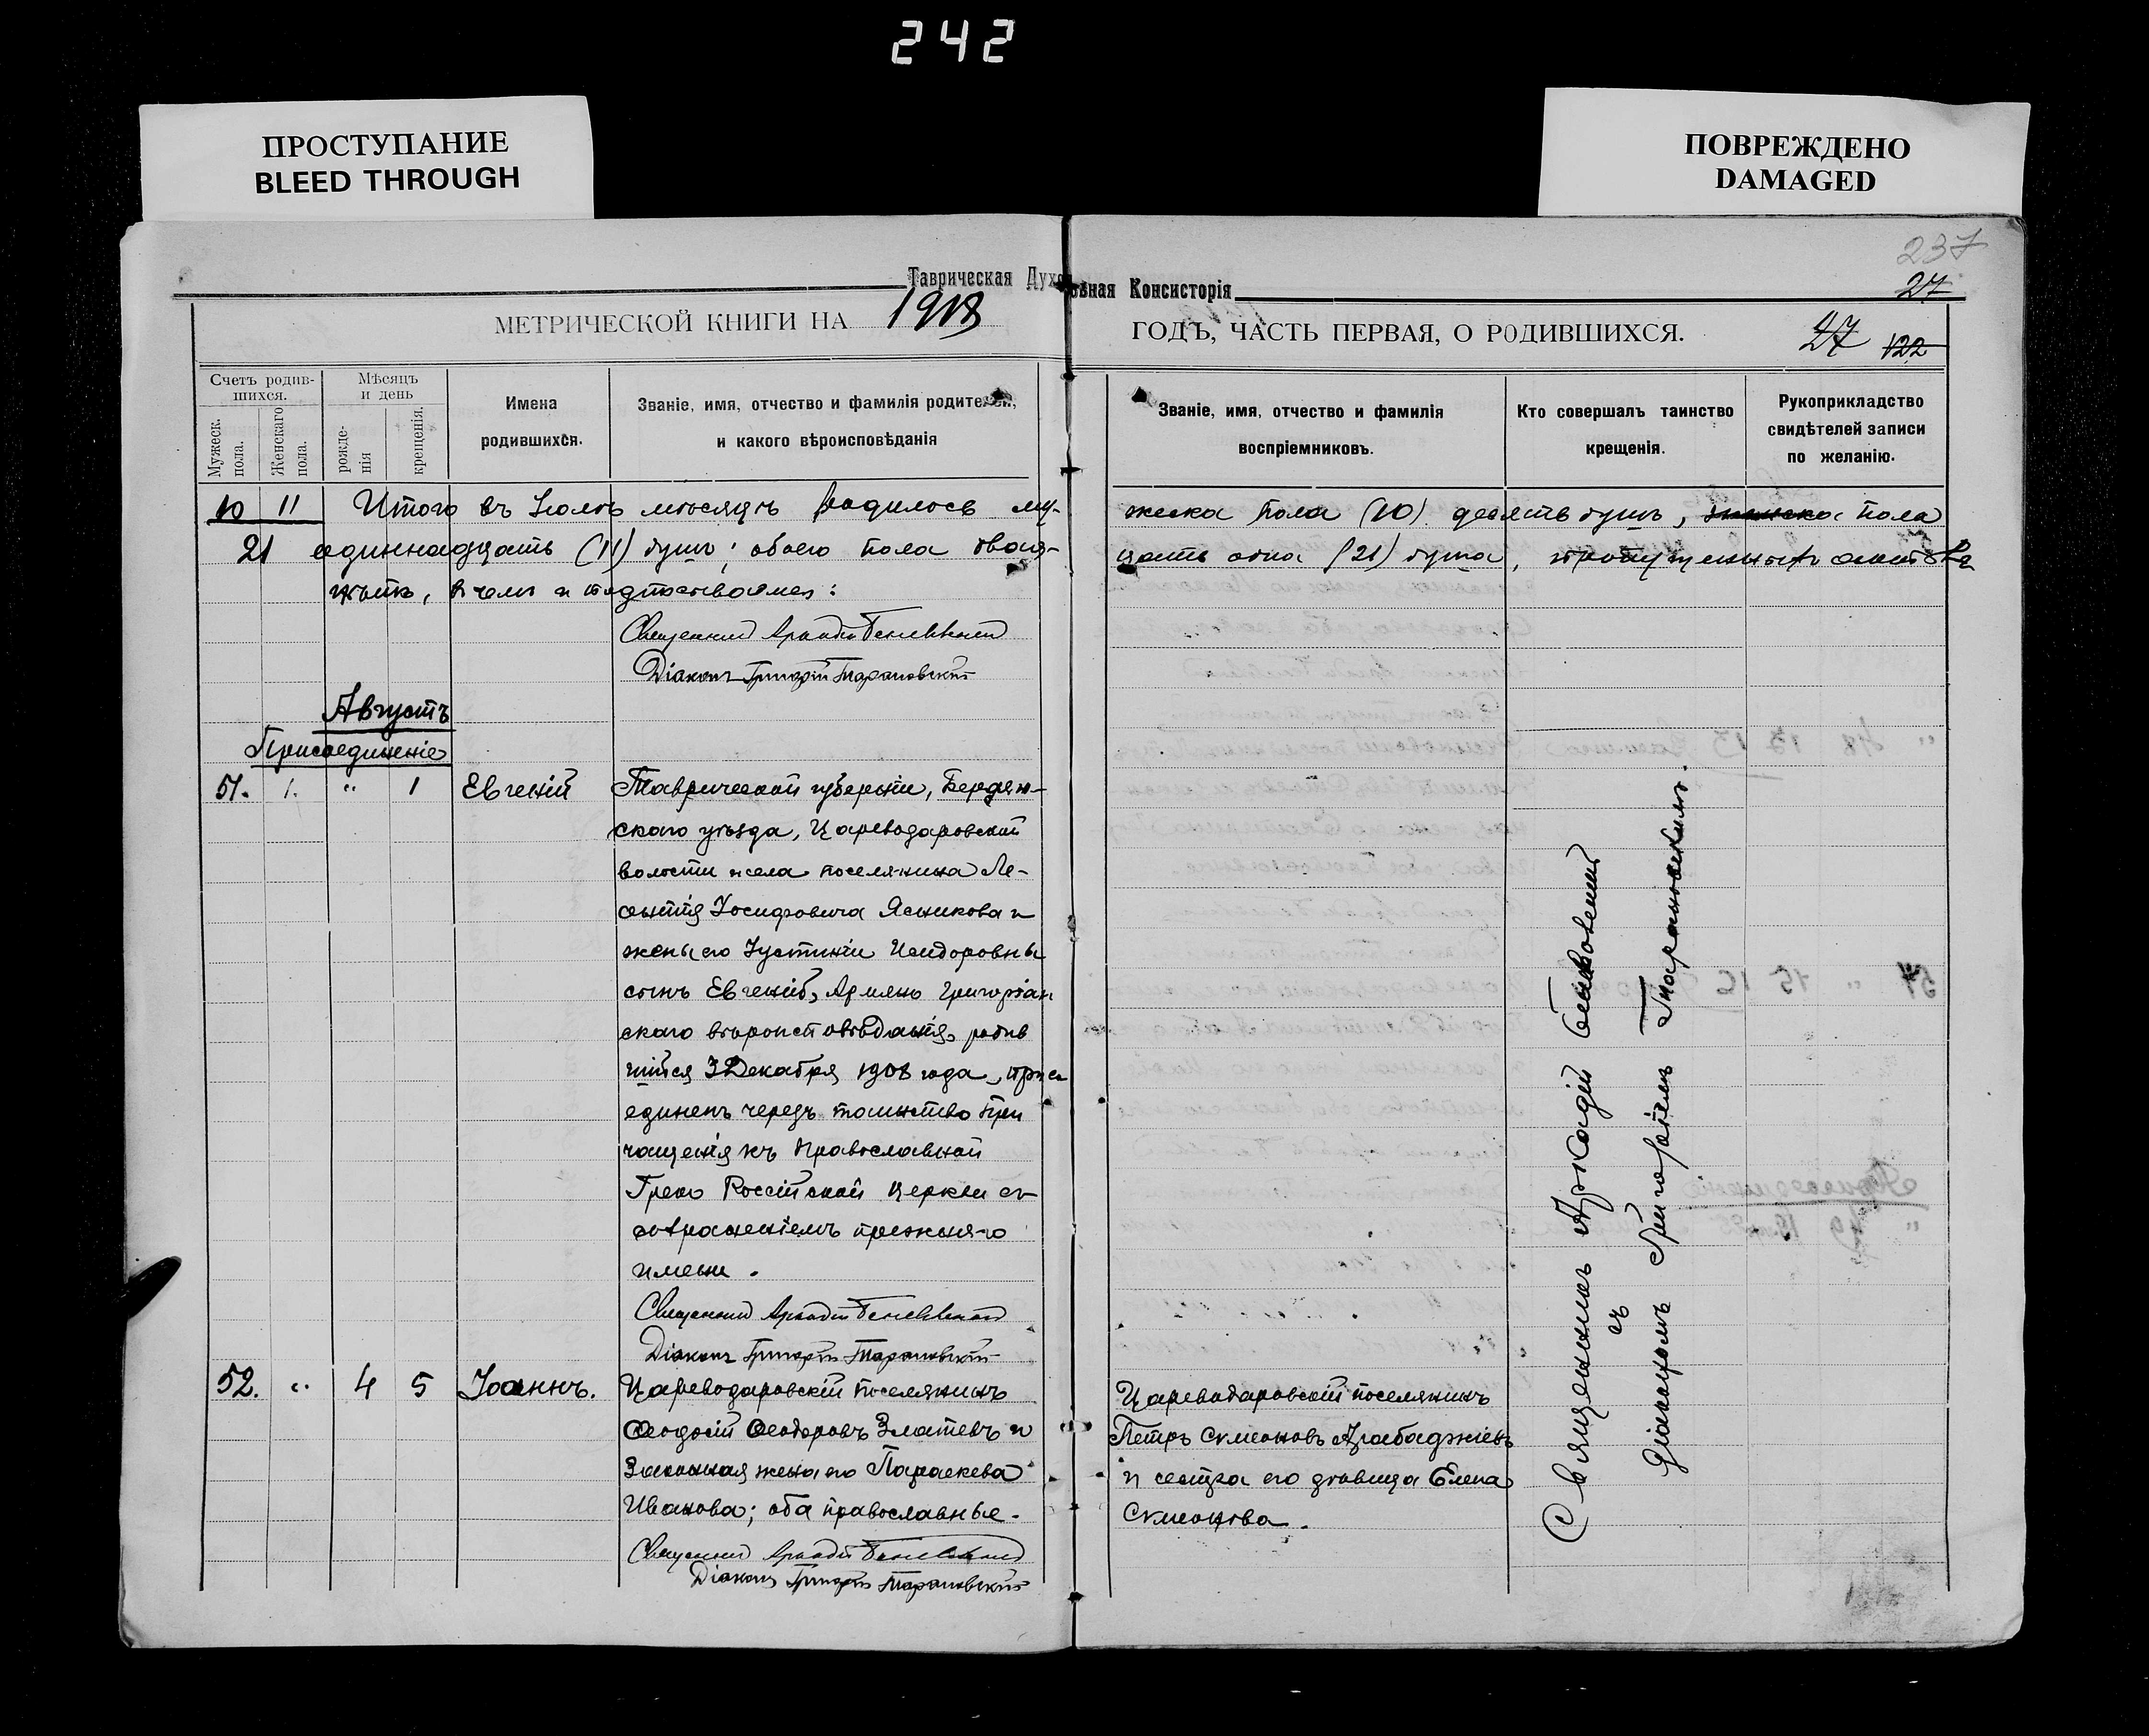 242
ПРОСТУПАНИЕ
BLEED THROUGH
ПОВРЕЖДЕНО
DAMAGED
237
27
Таврическая Духовная Консисторія
МЕТРИЧЕСКОЙ КНИГИ НА 1908
ГОДЪ, ЧАСТЬ ПЕРВАЯ, О РОДИВШИХСЯ.
27 122
Счетъ родив-
шихся.
Мужеск. пола.
Женскаго пола.
Мѣсяцъ
и день
рожде-
нія
крещенія.
Имена
родившихся.
Званіе, имя, отчество и фамилія родителей,
и какого вѣроисповѣданія
Званіе, имя, отчество и фамилія
воспріемниковъ.
Кто совершалъ таинство
крещенія.
Рукоприкладство
свидѣтелей записи
по желанію.
10 11 Итого въ Іюлѣ мѣсяцѣ родилось му-
жеска пола (10) десять душъ, женска пола
21 одиннадцать (11) душъ; обоего пола двад-
цать одна (21) душа, пропущенныхъ
нѣтъ, въ чемъ и подписываемся:
Священникъ Аркадій
Діаконъ Григорій Тарановскій
Августъ
Присоединеніе
51. " 1 Евгеній Таврической губерніи, Бердян-
скаго уѣзда, Цареводаровской
волости и села поселянина Ле-
онтія Іосифовича Ясникова и
жены его Іустиніи Исидоровны
сынъ Евгеній, Армяно Григоріан
скаго вѣроисповѣданія, родив
шійся 3 Декабря 1908 года, присо
единенъ чрезъ таинство При
чащенія къ Православной
Греко Россійской Церкви съ
сохраненіемъ прежняго
имени.
Священникъ Аркадій
Діаконъ Григорій Тарановскій
52. " 4 5 Іоаннъ. Цареводаровскій поселянинъ
Ѳеодосій Ѳеодоровъ Златевъ и
Законная жена его Параскева
Иванова; оба православные.
Священникъ Аркадій
Діаконъ Григорій Тарановскій
Цареводаровскій поселянинъ
Петръ Симеоновъ Арабаджіевъ
и сестра его дѣвица Елена
Симеонова.
Священникъ Аркадій
съ
Діакономъ Григоріемъ Тарановскимъ.